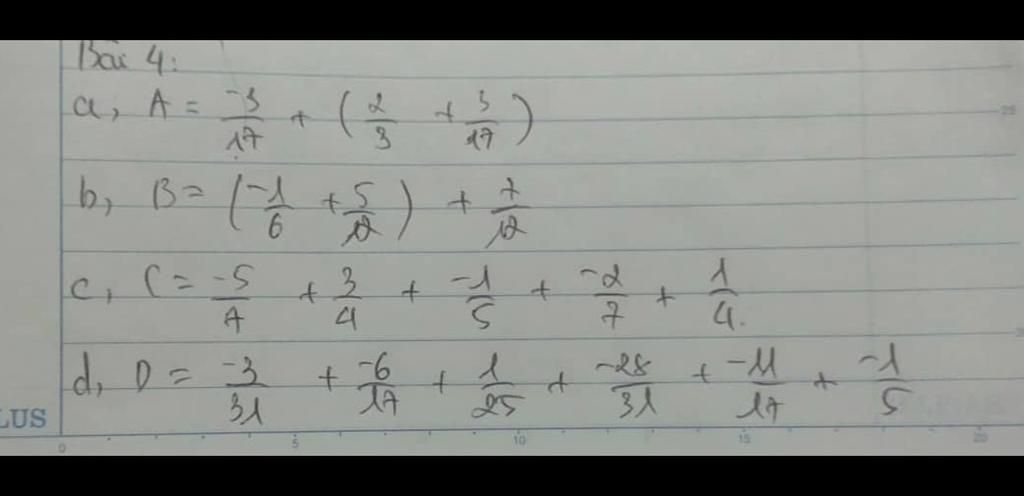 Bài 4:
a, A = -3/17 + (2/3 + 3/17)
b, B = (-1/6 + 5/12) + 7/12
c, C = -5/7 + 3/4 + -1/5 + -2/7 + 1/4.
d, D = -3/31 + -6/17 + 1/25 + -28/31 + -11/17 + -1/5
LUS
0 5 10 15 20